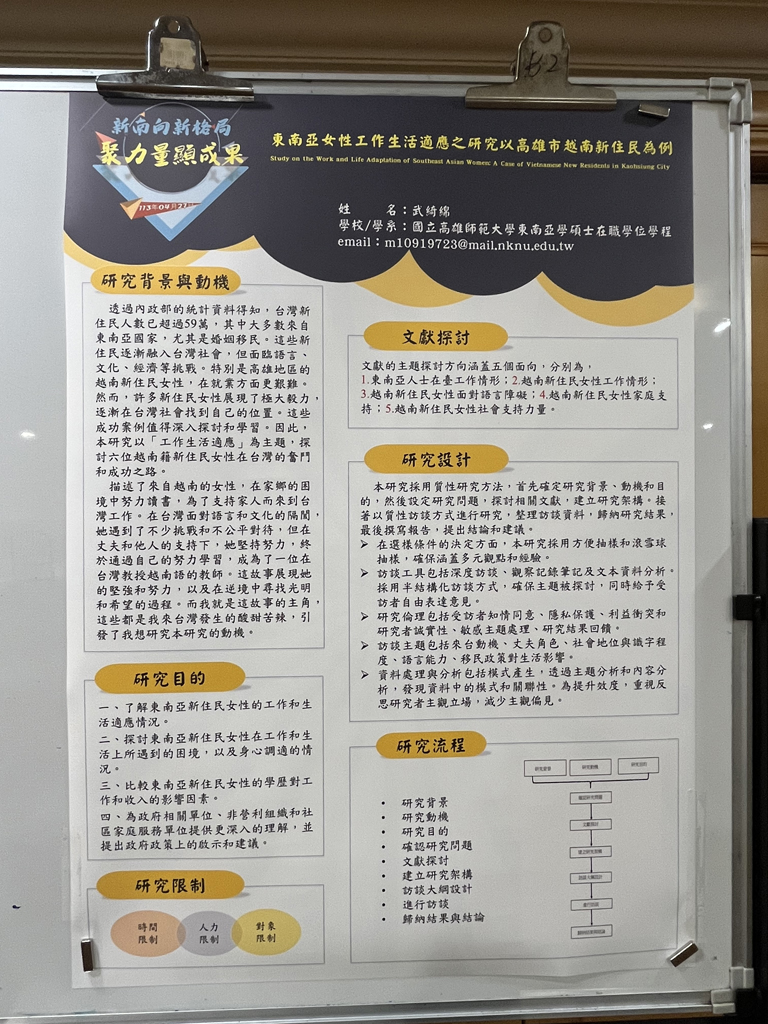 62
新南向新格局
聚力量顯成果
113年04月27日
東南亞女性工作生活適應之研究以高雄市越南新住民為例
Study on the Work and Life Adaptation of Southeast Asian Women: A Case of Vietnamese New Residents in Kaohsiung City
姓 名：武綺錦
學校/學系：國立高雄師範大學東南亞學碩士在職學位學程
email：m10919723@mail.nknu.edu.tw
研究背景與動機
透過內政部的統計資料得知，台灣新
住民人數已超過59萬，其中大多數來自
東南亞國家，尤其是婚姻移民。這些新
住民逐漸融入台灣社會，但面臨語言、
文化、經濟等挑戰。特別是高雄地區的
越南新住民女性，在就業方面更艱難。
然而，許多新住民女性展現了極大毅力，
逐漸在台灣社會找到自己的位置。這些
成功案例值得深入探討和學習。因此，
本研究以「工作生活適應」為主題，探
討六位越南籍新住民女性在台灣的奮鬥
和成功之路。
描述了來自越南的女性，在家鄉的困
境中努力讀書，為了支持家人而來到台
灣工作。在台灣面對語言和文化的隔閡，
她遇到了不少挑戰和不公平對待，但在
丈夫和他人的支持下，她堅持努力，終
於通過自己的努力學習，成為了一位在
台灣教授越南語的教師。這故事展現她
的堅強和努力，以及在逆境中尋找光明
和希望的過程。而我就是這故事的主角，
這些都是我來台灣發生的酸甜苦辣，引
發了我想研究本研究的動機。
研究目的
一、了解東南亞新住民女性的工作和生
活適應情況。
二、探討東南亞新住民女性在工作和生
活上所遇到的困境，以及身心調適的情
況。
三、比較東南亞新住民女性的學歷對工
作和收入的影響因素。
四、為政府相關單位、非營利組織和社
區家庭服務單位提供更深入的理解，並
提出政府政策上的啟示和建議。
研究限制
時間
限制
人力
限制
對象
限制
文獻探討
文獻的主題探討方向涵蓋五個面向，分別為，
1.東南亞人士在臺工作情形；2.越南新住民女性工作情形；
3.越南新住民女性面對語言障礙；4.越南新住民女性家庭支
持；5.越南新住民女性社會支持力量。
研究設計
本研究採用質性研究方法，首先確定研究背景、動機和目
的，然後設定研究問題，探討相關文獻，建立研究架構。接
著以質性訪談方式進行研究，整理訪談資料，歸納研究結果，
最後撰寫報告，提出結論和建議。
➢ 在選樣條件的決定方面，本研究採用方便抽樣和滾雪球
抽樣，確保涵蓋多元觀點和經驗。
➢ 訪談工具包括深度訪談、觀察記錄筆記及文本資料分析。
採用半結構化訪談方式，確保主題被探討，同時給予受
訪者自由表達意見。
➢ 研究倫理包括受訪者知情同意、隱私保護、利益衝突和
研究者誠實性、敏感主題處理、研究結果回饋。
➢ 訪談主題包括來台動機、丈夫角色、社會地位與識字程
度、語言能力、移民政策對生活影響。
➢ 資料處理與分析包括模式產生，透過主題分析和內容分
析，發現資料中的模式和關聯性。為提升效度，重視反
思研究者主觀立場，減少主觀偏見。
研究流程
• 研究背景
• 研究動機
• 研究目的
• 確認研究問題
• 文獻探討
• 建立研究架構
• 訪談大綱設計
• 進行訪談
• 歸納結果與結論
研究背景
研究動機
研究目的
確認研究問題
文獻探討
建立研究架構
訪談大綱設計
進行訪談